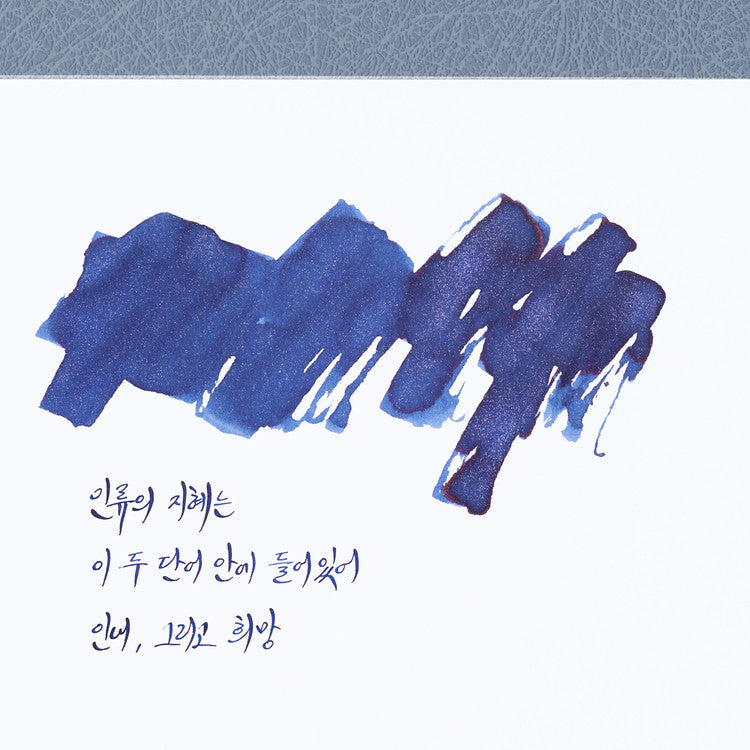 인류의 지혜는
이 두 단어 안에 들어있어
인내, 그리고 희망